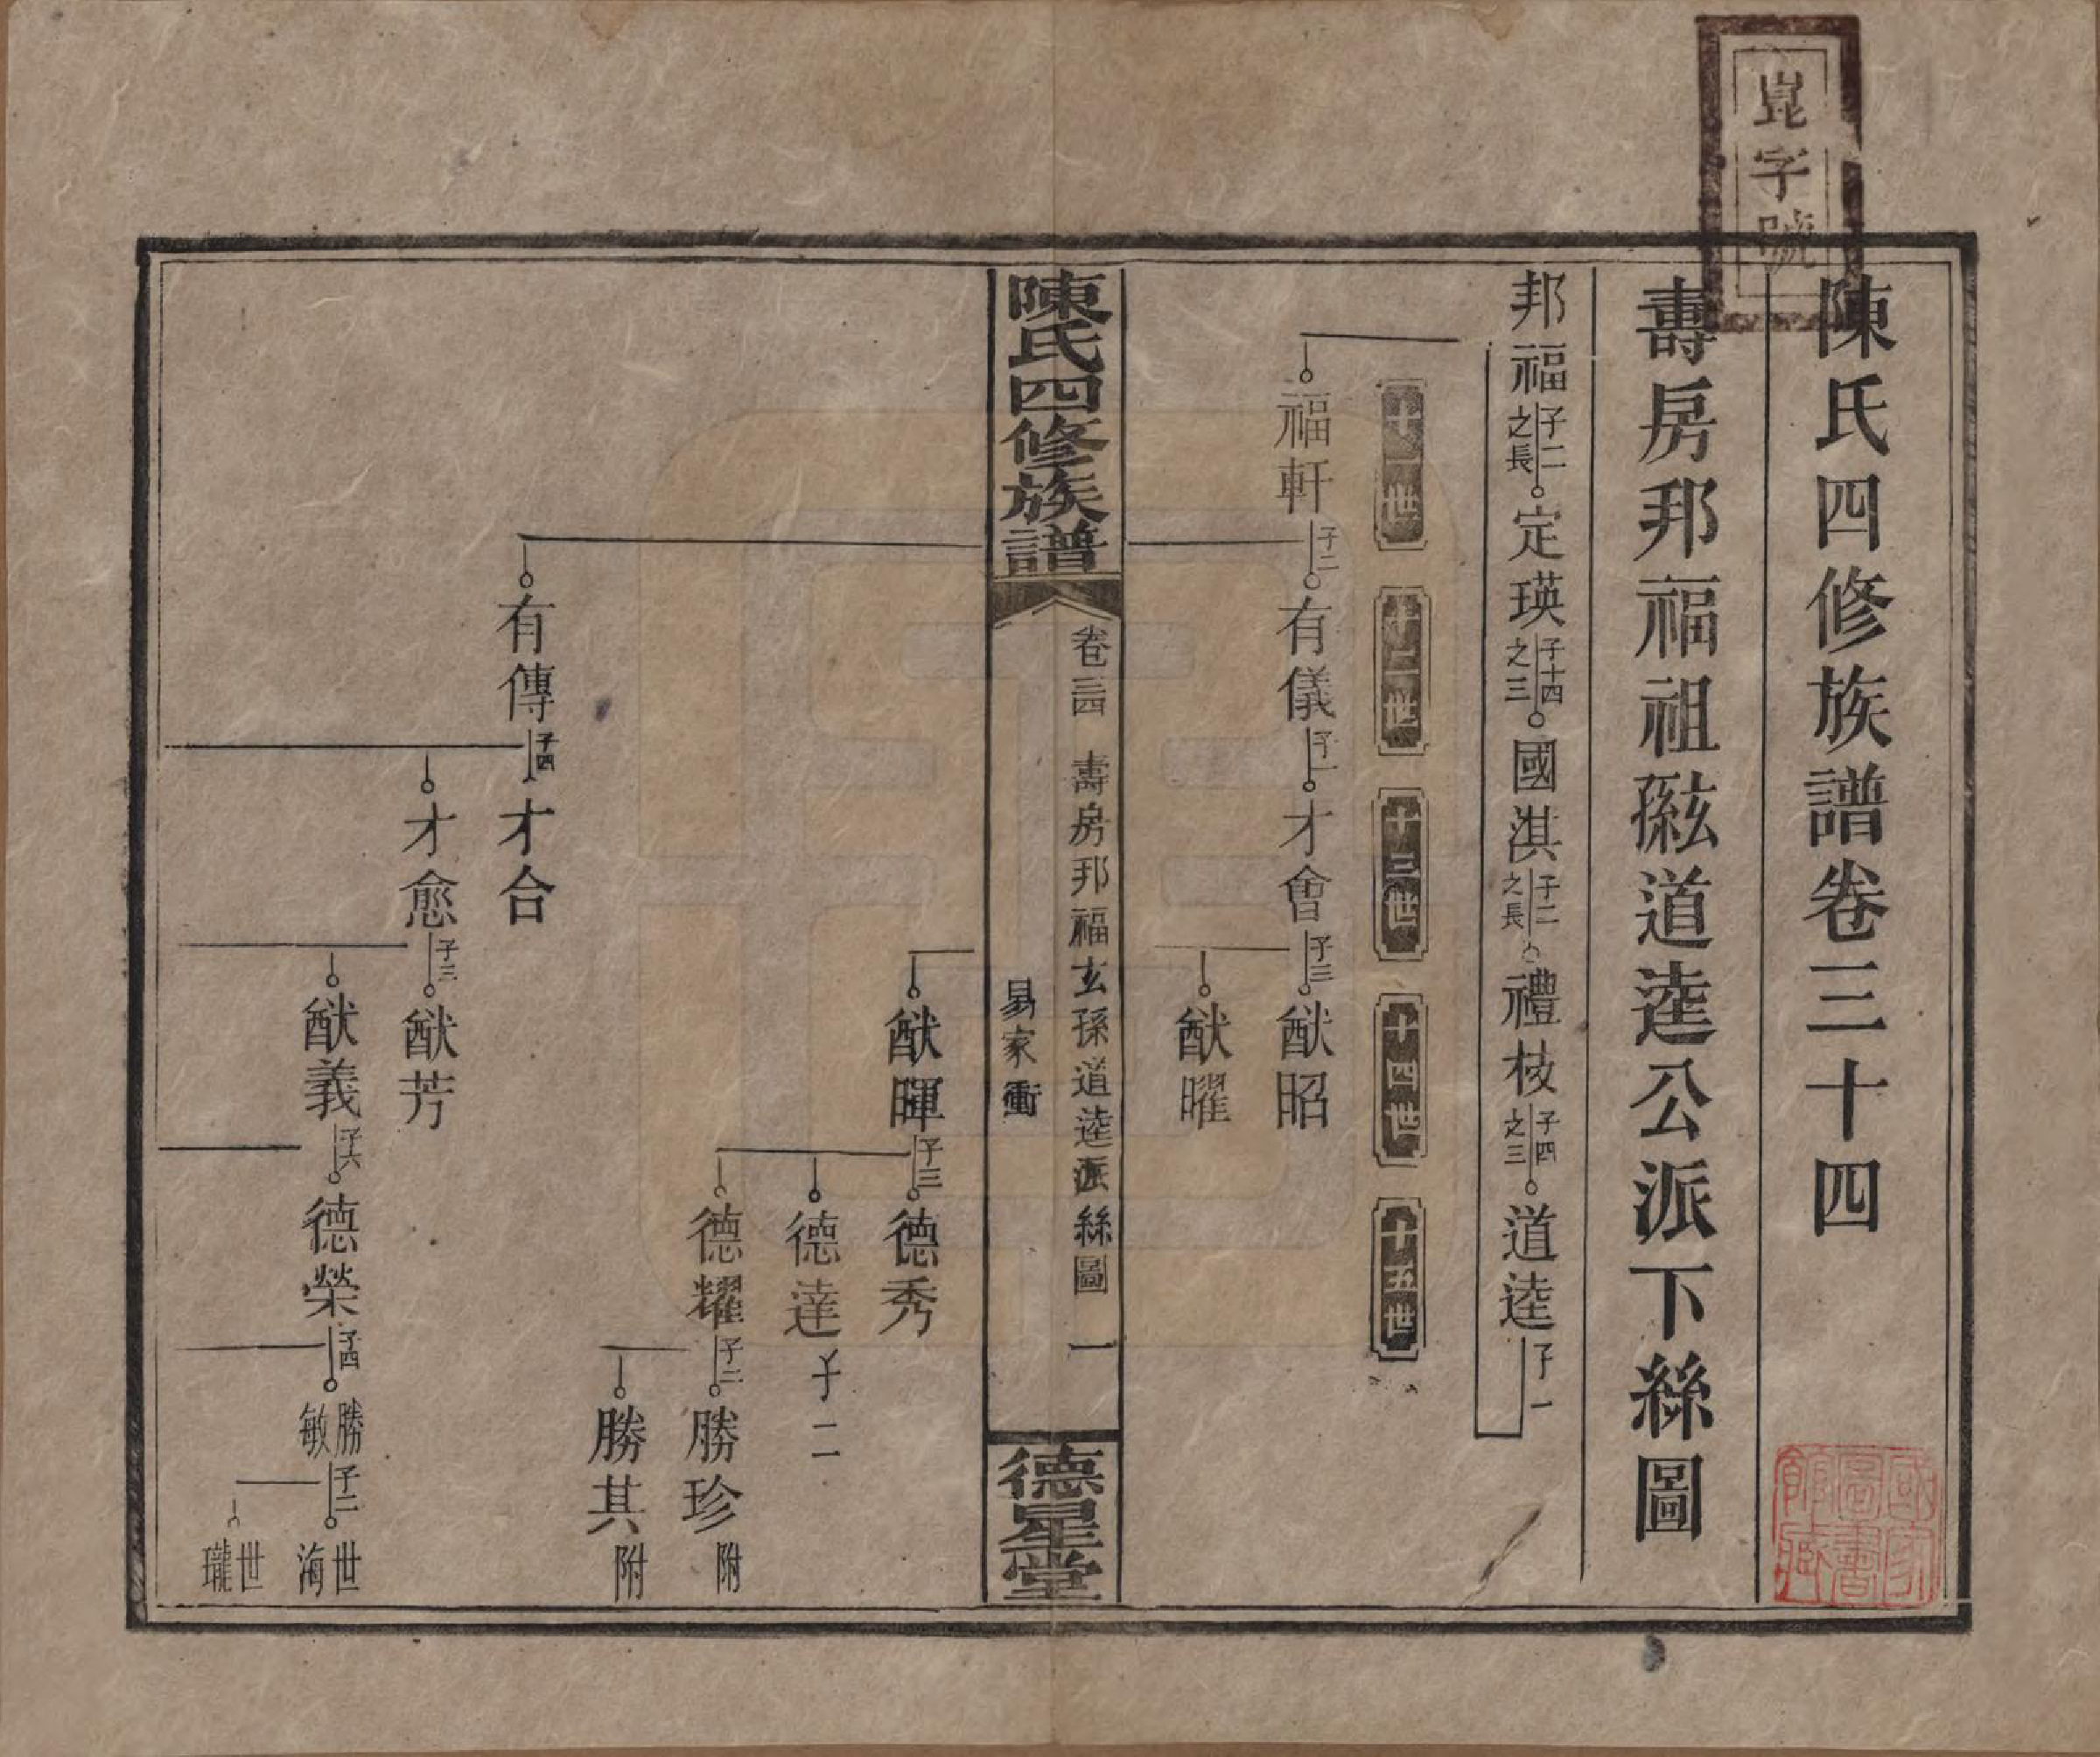 崑字號
陳氏四修族譜卷三十四
壽房邦福祖孫玄道逵公派下絲圖
邦福子二之長定瑛子十四之三國淇子二之長禮枝子四之三道逵子一
十一世
十二世
十三世
十四世
十五世
福軒子二有儀子一才會子三猷昭
猷曜
陳氏四修族譜
卷三四
壽房邦福玄孫道逵派絲圖
一
易家衝
德星堂
猷暉子三德秀
德達子二
德耀子二勝珍附
勝其附
有傳子四才合
才愈子三猷芳
猷義子六德榮子四勝敏子二世海
世瓏
國家圖書館藏